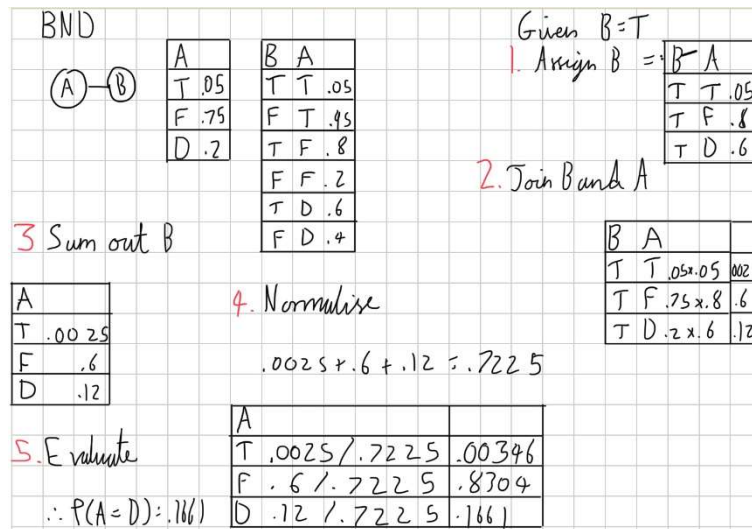 BND
A—B
A
T .05
F .75
D .2
B A
T T .05
F T .95
T F .8
F F .2
T D .6
F D .4
Given B=T
1. Assign B =
B A
T T .05
T F .8
T D .6
2. Join B and A
B A
T T .05x.05 .002
T F .75x.8 .6
T D .2x.6 .12
3 Sum out B
A
T .0025
F .6
D .12
4. Normalise
.0025+.6+.12 = .7225
A
T .0025/.7225 .00346
F .6/.7225 .8304
D .12/.7225 .1661
5. Evaluate
∴ P(A=D)=.1661